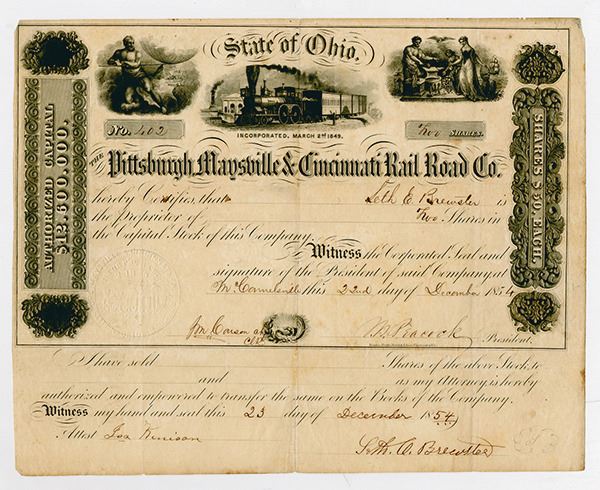 State of Ohio.
No. 402
Two SHARES.
INCORPORATED, MARCH 2ND 1849.
THE Pittsburgh, Maysville & Cincinnati Rail Road Co.
AUTHORIZED CAPITAL $12,500,000.
SHARES $50, EACH.
hereby Certifies, that Seth E Brewster is
the proprietor of Two Shares in
the Capital Stock of this Company.
Witness the Corporated Seal and
signature of the President of said Company at
McConnelsville this 22nd day of December 1854
Jm Carson
M. Peacock President.
I have sold Shares of the above Stock to
and as my Attorney is hereby
authorized and empowered to transfer the same on the Books of the Company.
Witness my hand and seal this 23 day of December 1854
Attest Isa Kinison
Seth O. Brewster